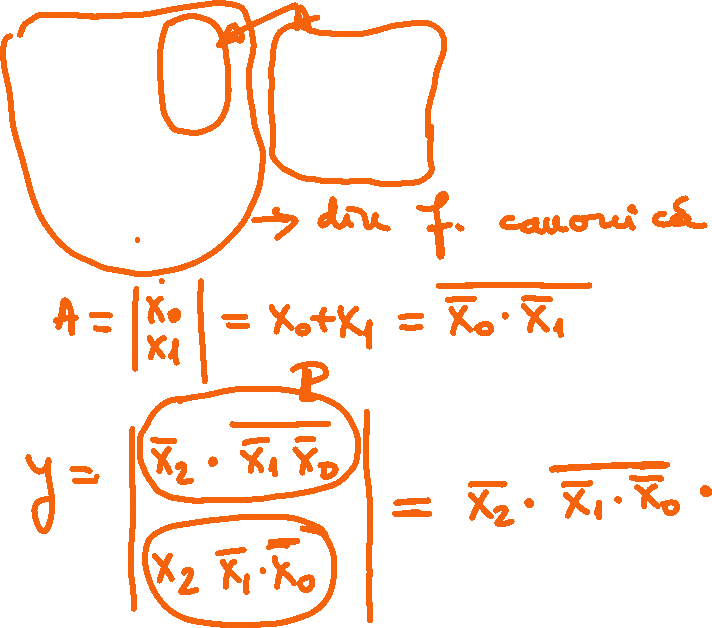 A
→ din f. canonică
A = |x₀ x₁| = x₀+x₁ = \overline{x̄₀·x̄₁}
P
y = |x̄₂·\overline{x̄₁ x̄₀} x₂ x̄₁·x̄₀| = x̄₂·\overline{x̄₁·x̄₀}·